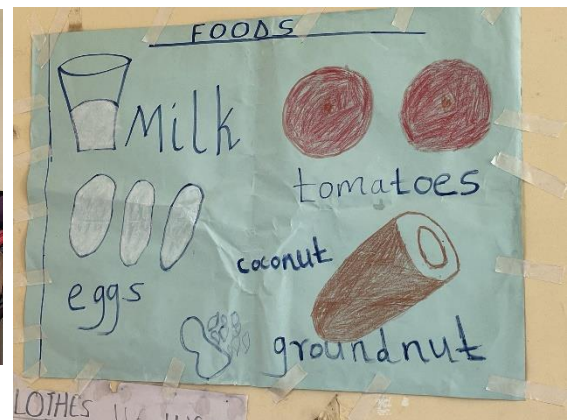 FOODS
Milk
tomatoes
coconut
eggs
groundnut
LOTHES